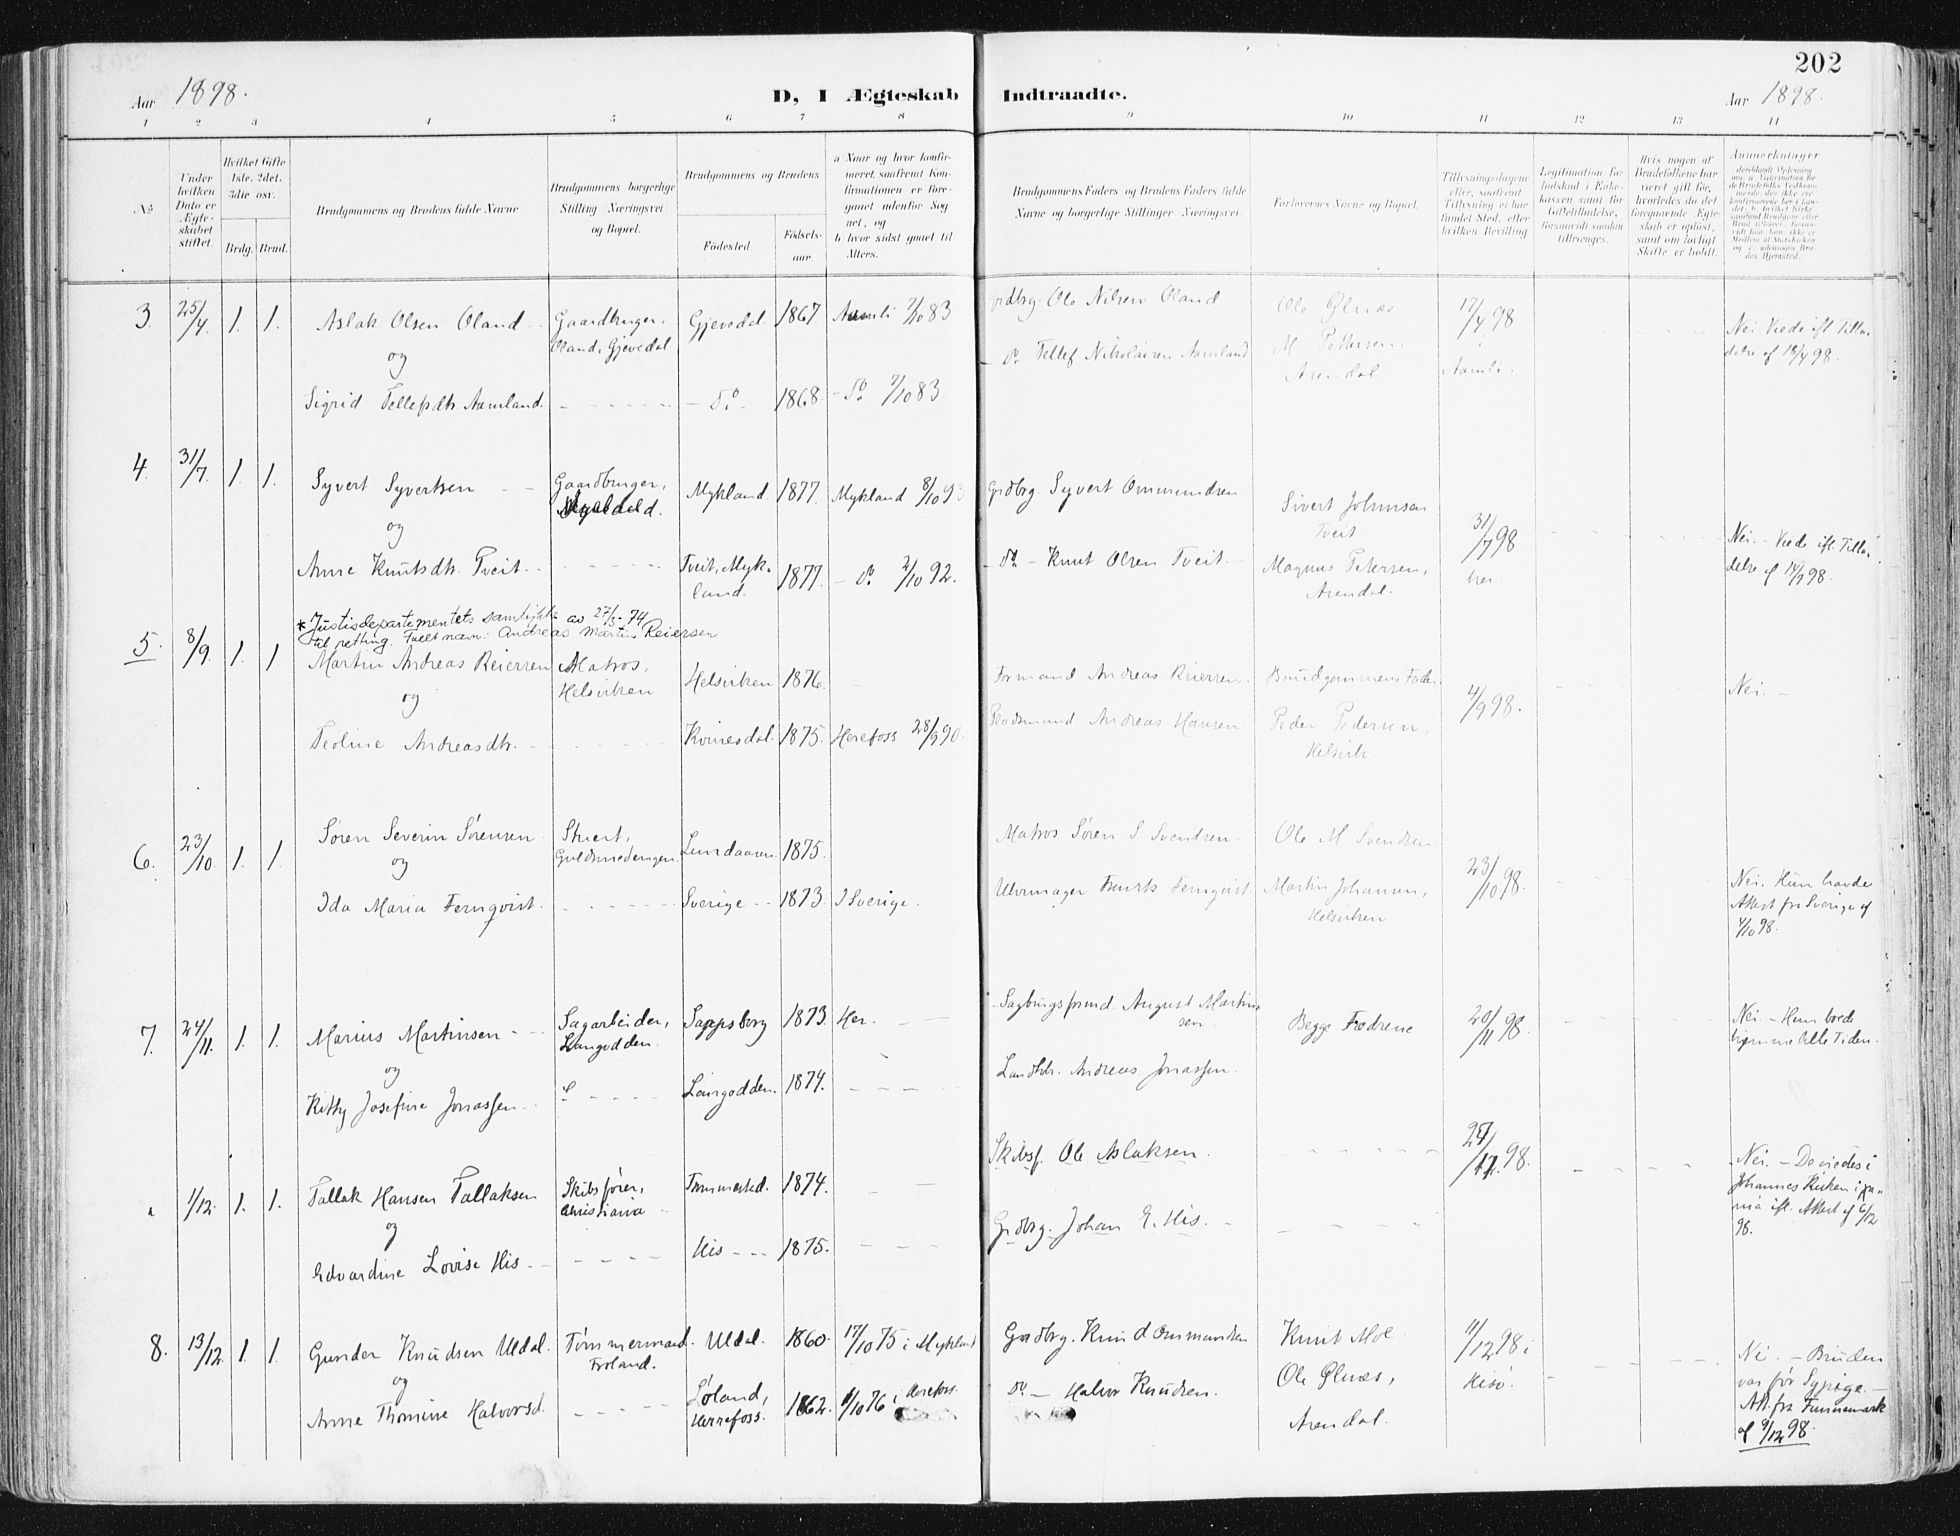 202
Aar 1898.
D, I Ægteskab Indtraadte.
Aar 1898.
1 2 3 4 5 6 7 8 9 10 11 12 13 14
No
Under hvilken Dato er Ægteskabet stiftet.
Hvilket Gifte 1ste. 2det. 3die osv.
Brdg. Brud.
Brudgommens og Brudens fulde Navne
Brudgommens borgerlige Stilling Næringsvei og Bopæl.
Brudgommens og Brudens
Födested.
Födselsaar.
a Naar og hvor konfirmeret, saafremt Konfirmationen er foregaaet udenfor Sognet, og
b hvor sidst gaaet til Alters.
Brudgommens Faders og Brudens Faders fulde Navne og borgerlige Stillinger Næringsvei.
Forlovernes Navne og Bopæl.
Tillysningsdagene eller, saafremt Tillysning ei har fundet Sted, efter hvilken Bevilling
Legitimation for Indskud i Enkekassen samt for Giftetilladelse, forsaavidt saadan tiltrænges.
Hvis nogen af Brudefolkene har været gift før, hvorledes da det foregaaende Ægteskab er oplöst, samt om lovligt Skifte er holdt.
Anmerkninger
3. 25/4. 1. 1. Aslak Olsen Oland Gaardbruger, Gjevedal 1867. Aamli 7/10 83
Ole Nilsen Oland Ole Øines 17/4 98 Nei Viede ifl. Tilladelse af 18/4 98.
Oland, Gjevedal
og
do. Tellef Nikolaisen Aamland M. Pettersen, Arendal i Aamli.
Sigrid Tellefsdtr. Aamland. do. 1868. do. 7/10 83.
4. 31/7. 1. 1. Syvert Syvertsen Gaardbruger, Mykland. 1877. Mykland 8/10 93
Grdbrg. Syvert Ommundsen Sivert Johnnsen Tveit. 31/7 98 Nei. - Viede ifl. Tilladelse af 14/7 98.
og
Anne Knutsdtr. Tveit. Tveit, Mykland. 1877. do. 2/10 92.
do. - Knut Olsen Tveit. Magnus Petersen, Arendal. her.
* Justisdepartementets samtykke av 27/3-74
til retting. Fullt navn: Andreas Martin Reiersen
5. 8/9. 1. 1. Martin Andreas Reiersen Matros, Helsirken Helsirken 1876.
Formand Andreas Reiersen. Brudgommens Fader. 4/9 98. Nei. -
og
Teoline Andreasdtr. Kvinesdal. 1875. Herefoss 28/9 90.
Baadsmand Andreas Hansen. Peder Pedersen, Helsirk.
6. 23/10 1. 1. Søren Severin Sørensen Stuert, Guldsmedengen. Lundaaren 1875.
Matros Søren S Svendsen. Ole M. Svendsen 23/10 98. Nei. Hun havde Attest fra Sverige af 4/10 98.
og
Ida Maria Fernqvist. Sverige 1873. I Sverige.
Uhrmager Fernqvist. Martin Johansen, Helsirken
7. 24/11. 1. 1. Marius Martinsen Sagarbeider, Langodden. Sarpsborg 1873. Her.
Sagbrugsformd. August Martinsen. Begge Fædrene 20/11 98. Nei. - Hun boede hjemme hele Tiden.
og
Kitty Josefine Jonassen Langodden. 1874.
Landhdl. Andreas Jonassen.
1/12. 1. 1. Tallak Hansen Tallaksen Skibsfører, Christiania Trommested. 1874.
Skibsf. Ole Aslaksen. 27/12 98. Nei. - De viedes i Johannes Kirken i Xania ifl. Attest af 6/12 98.
og
Edvardine Lovise His His 1875.
Grdbrg. Johan E. His.
8. 13/12. 1. 1. Gunder Knudsen Uldal. Tømmermand. Froland. Uldal. 1860. 17/10 75 i Mykland
Grdbrg. Knud Ommundsen Knut Moe 11/12 98 i Hisø. Nei. - Bruden var før Sypige. Att. fra Finnemark af 9/12 98.
og
Anne Thomine Halvorsd. Løland, Herrefoss. 1862. 1/10 76 i Herefoss.
do. - Halvor Knudsen. Ole Øines, Arendal.